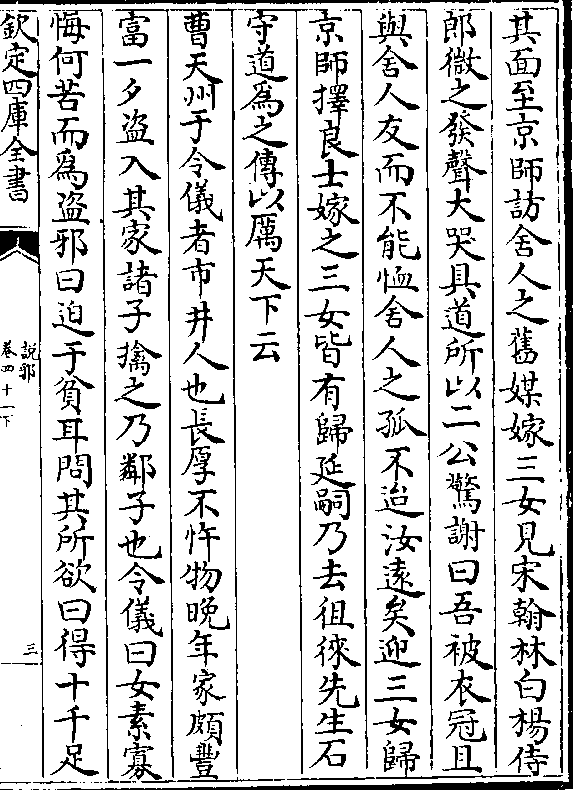 其面至京師訪舍人之舊媒嫁三女見宋翰林白楊侍
郎徽之發聲大哭具道所以二公驚謝曰吾被衣冠且
與舍人友而不能恤舍人之孤不迨汝遠矣迎三女歸
京師擇良士嫁之三女皆有歸延嗣乃去徂徠先生石
守道為之傳以厲天下云
曹天州于令儀者市井人也長厚不忤物晚年家頗豐
富一夕盜入其家諸子擒之乃鄰子也令儀曰女素寡
悔何苦而為盜邪曰迫于貧耳問其所欲曰得十千足
欽定四庫全書
說郛
卷四十一下
三